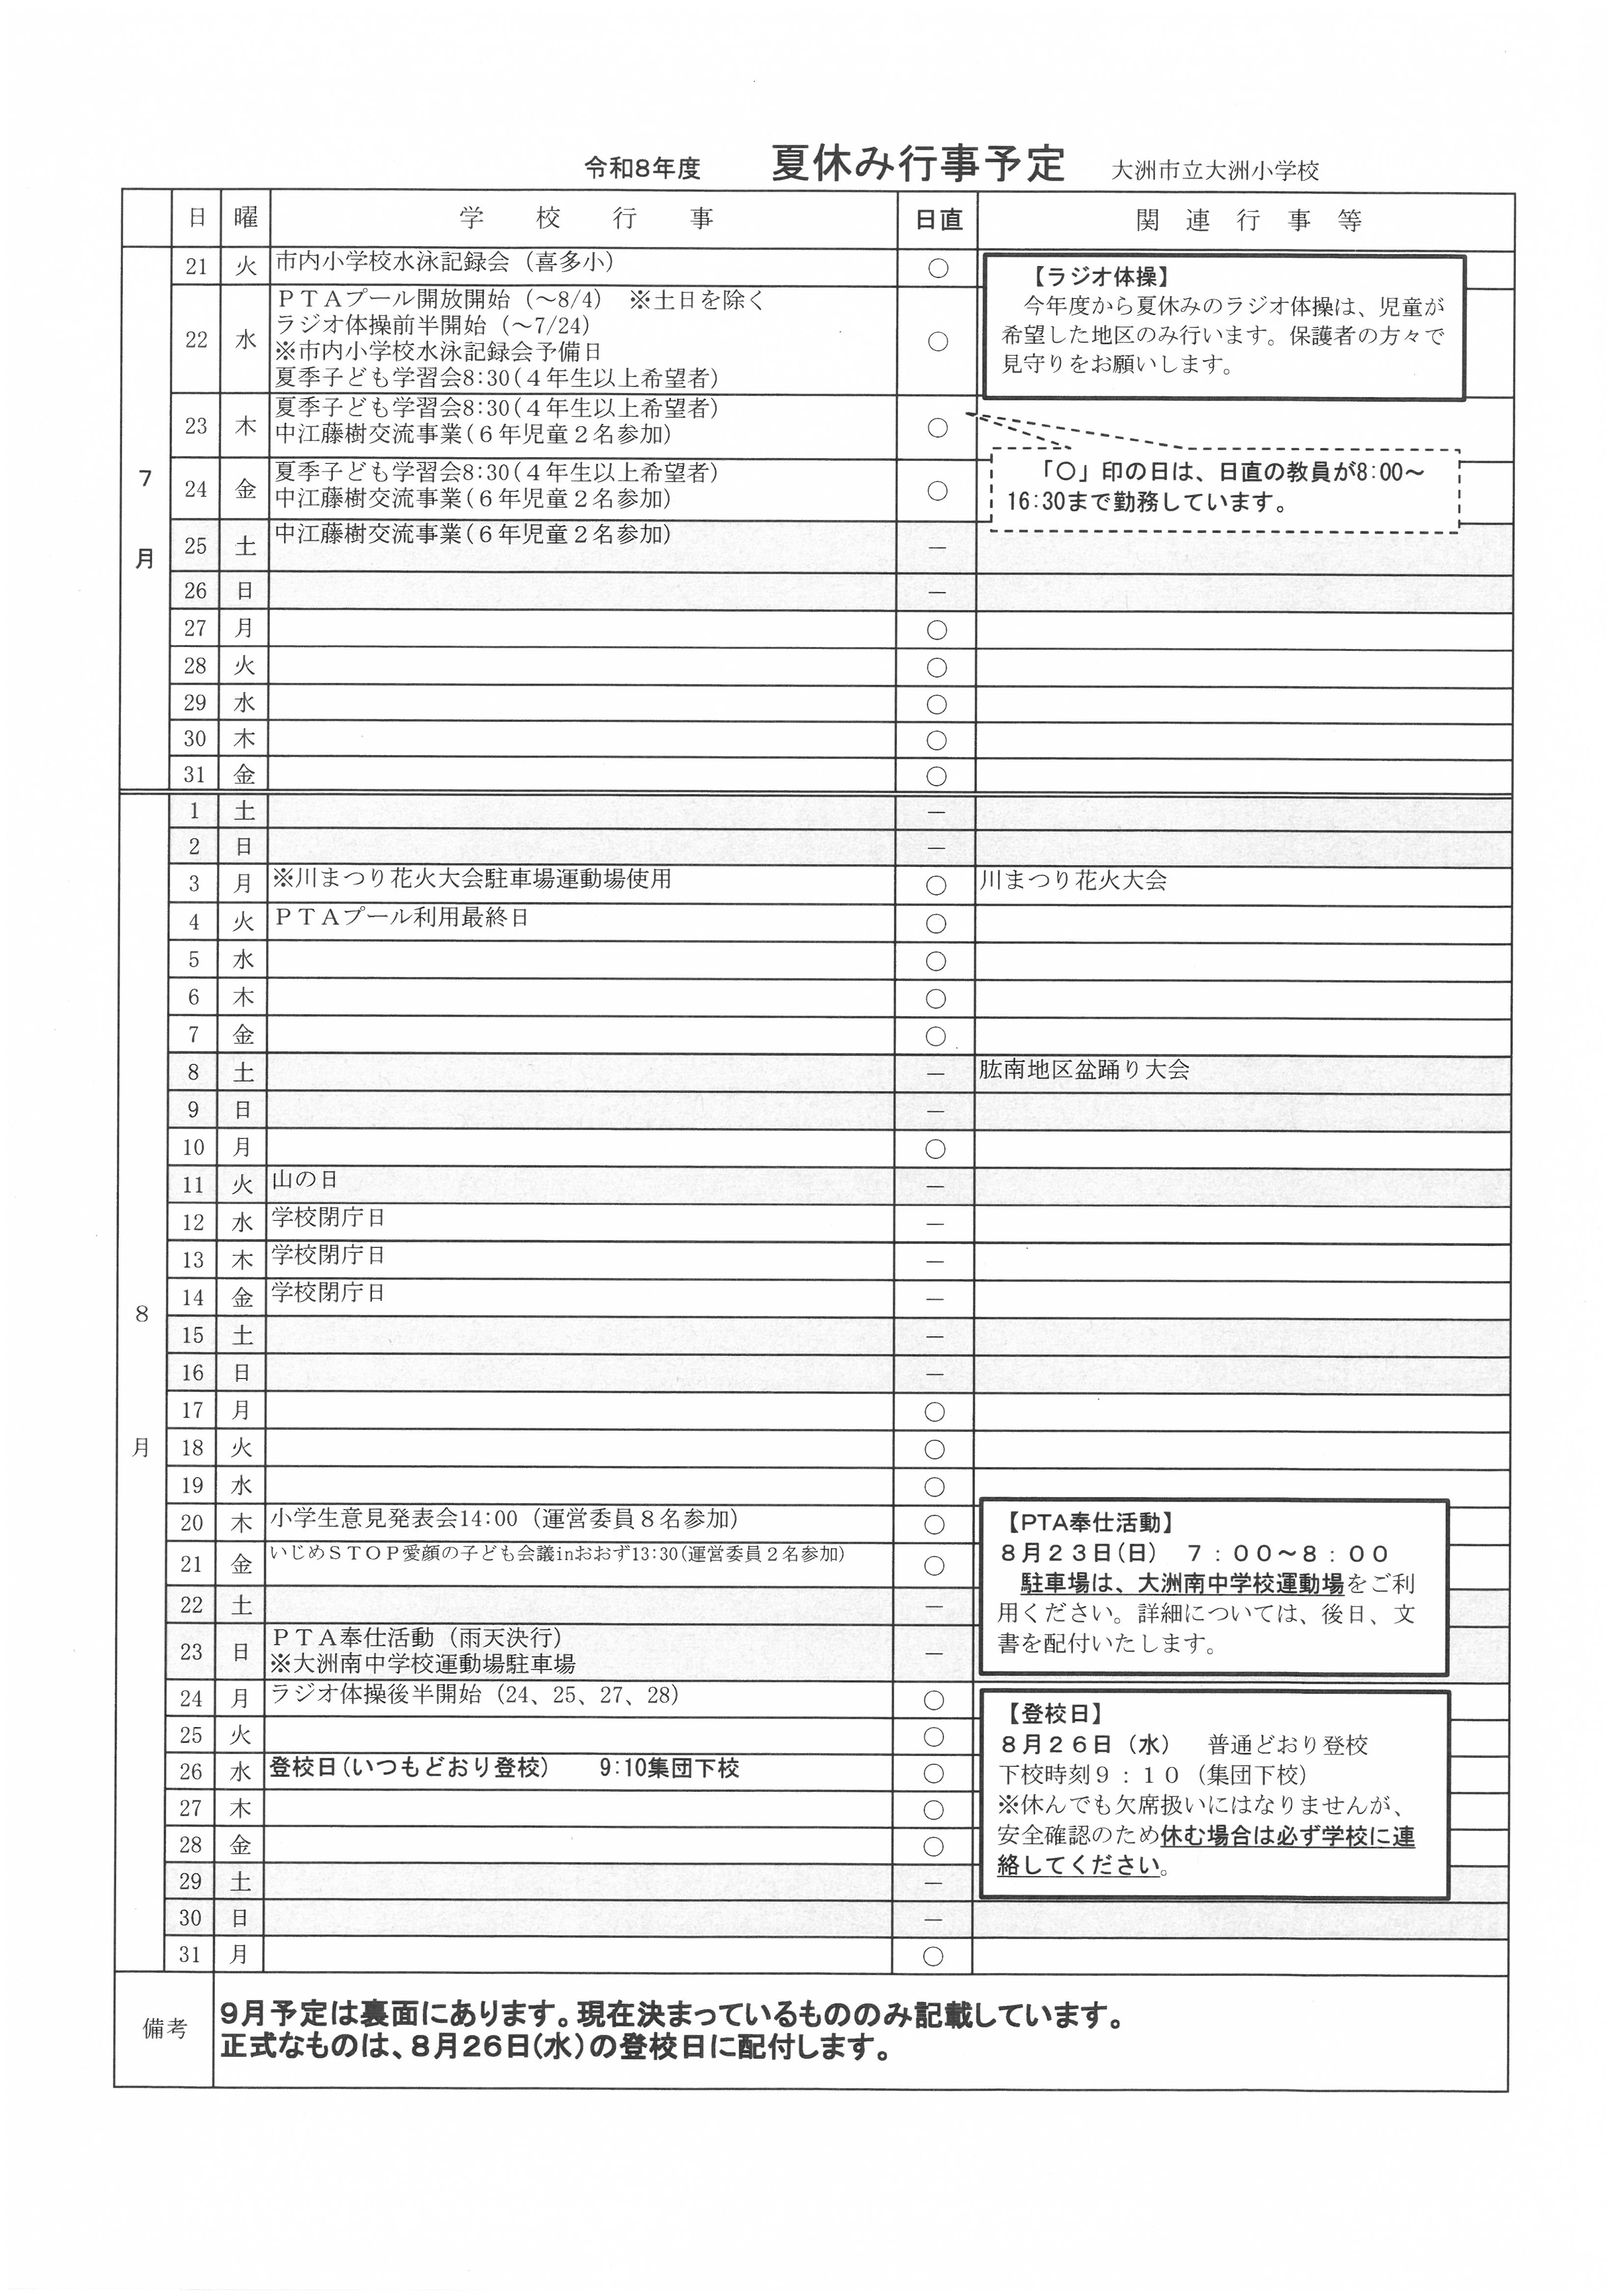 令和8年度　夏休み行事予定　大洲市立大洲小学校
日　曜　学校行事　日直　関連行事等
7月
21　火　市内小学校水泳記録会（喜多小）　○
22　水　ＰＴＡプール開放開始（～8/4）　※土日を除く　○
ラジオ体操前半開始（～7/24）
※市内小学校水泳記録会予備日
夏季子ども学習会8:30(４年生以上希望者)
【ラジオ体操】
今年度から夏休みのラジオ体操は、児童が
希望した地区のみ行います。保護者の方々で
見守りをお願いします。
23　木　夏季子ども学習会8:30(４年生以上希望者)　○
中江藤樹交流事業(６年児童２名参加)
24　金　夏季子ども学習会8:30(４年生以上希望者)　○
中江藤樹交流事業(６年児童２名参加)
「○」印の日は、日直の教員が8:00～
16:30まで勤務しています。
25　土　中江藤樹交流事業(６年児童２名参加)　－
26　日　－
27　月　○
28　火　○
29　水　○
30　木　○
31　金　○
8月
1　土　－
2　日　－
3　月　※川まつり花火大会駐車場運動場使用　○　川まつり花火大会
4　火　ＰＴＡプール利用最終日　○
5　水　○
6　木　○
7　金　○
8　土　－　肱南地区盆踊り大会
9　日　－
10　月　○
11　火　山の日　－
12　水　学校閉庁日　－
13　木　学校閉庁日　－
14　金　学校閉庁日　－
15　土　－
16　日　－
17　月　○
18　火　○
19　水　○
20　木　小学生意見発表会14:00（運営委員８名参加）　○
21　金　いじめＳＴＯＰ愛顔の子ども会議inおおず13:30(運営委員２名参加)　○
22　土　－
23　日　ＰＴＡ奉仕活動（雨天決行）　－
※大洲南中学校運動場駐車場
【PTA奉仕活動】
８月２３日(日)　７：００～８：００
駐車場は、大洲南中学校運動場をご利
用ください。詳細については、後日、文
書を配付いたします。
24　月　ラジオ体操後半開始（24、25、27、28）　○
25　火　○
26　水　登校日(いつもどおり登校)　9:10集団下校　○
27　木　○
28　金　○
29　土　－
30　日　－
31　月　○
【登校日】
８月２６日（水）　普通どおり登校
下校時刻９：１０（集団下校）
※休んでも欠席扱いにはなりませんが、
安全確認のため休む場合は必ず学校に連
絡してください。
備考
9月予定は裏面にあります。現在決まっているもののみ記載しています。
正式なものは、8月26日(水)の登校日に配付します。